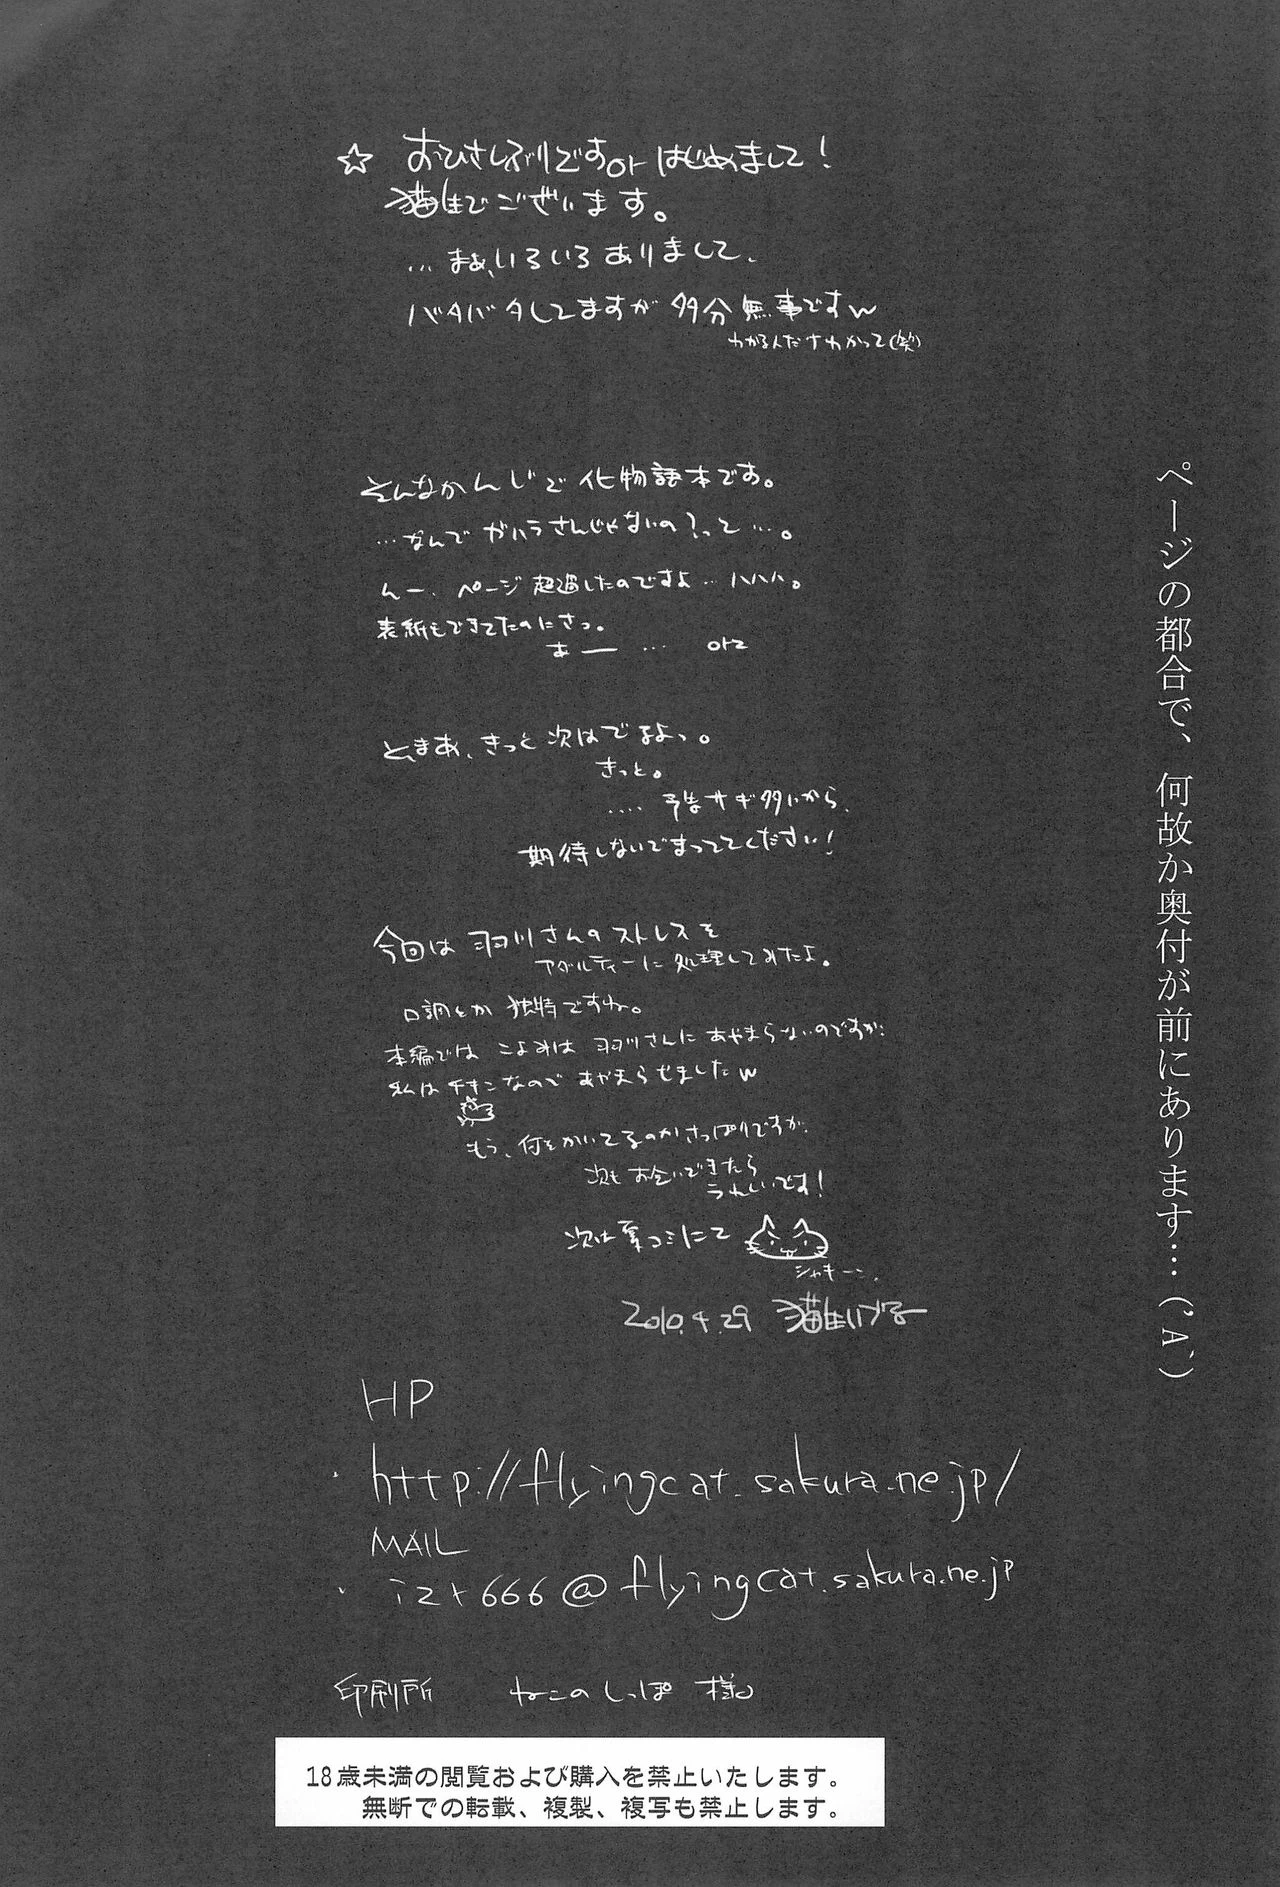 ページの都合で、何故か奥付が前にあります…('A`)
☆ おひさしぶりですorはじめまして！
猫生でございます。
…まぁ、いろいろありまして、
バタバタしてますが多分無事ですw
わかる人だけわかって(笑)
そんなかんじで化物語本です。
…なんでガハラさんじゃないの？って…。
んー、ページ超過したのですよ…ハハハ。
表紙もできてたのにさっ。
あー … orz
とまあ、きっと次はでるよっ。
きっと。
‥‥予告サギ多いから、
期待しないでまっててください！
今回は羽川さんのストレスを
アダルティーに処理してみたよ。
口調とか独特ですね。
本編ではこよみは羽川さんにあやまらないのですが、
私はチキンなのであやまらせましたw
もう、何をかいてるのかさっぱりですが、
次もお会いできたら
うれしいです！
次は夏コミにて
シャキーン、
2010.4.29 猫生いづる
HP
・http://flyingcat.sakura.ne.jp/
MAIL
・izr666@flyingcat.sakura.ne.jp
印刷所 ねこのしっぽ 様
18歳未満の閲覧および購入を禁止いたします。
無断での転載、複製、複写も禁止します。